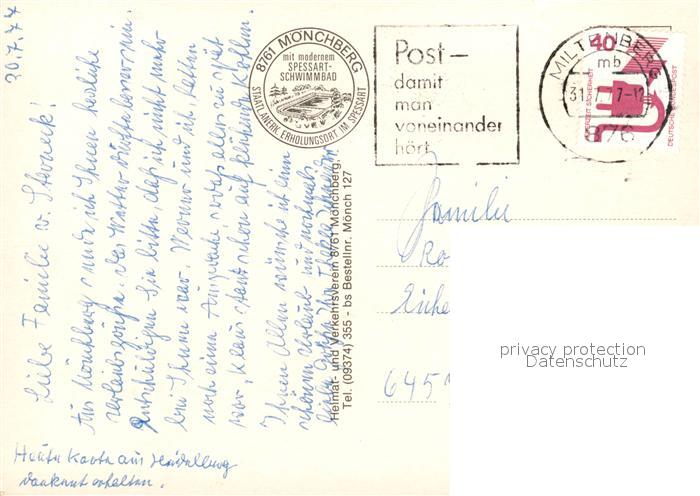 30.7.77
Liebe Familie v.
Aus Mönchberg sende ich Ihnen herzliche
Urlaubsgrüße. Das Wetter dürfte besser sein.
Entschuldigen Sie bitte daß ich nicht mehr
bei Ihnen war. Werner und ich hatten
noch eine Aussprache sodaß alles zu spät
war, Klaus stand schon auf
Ihnen Allen wünsche ich einen
schönen Urlaub und nochmals
Heute Karte aus Heidelberg
dankend erhalten.
8761 MÖNCHBERG
mit modernem
SPESSART-
SCHWIMMBAD
STAATL. ANERK. ERHOLUNGSORT IM SPESSART
Heimat- und Verkehrsverein 8761 Mönchberg,
Tel. (09374) 355 - bs Bestellnr. Mönch 127
Post –
damit
man
voneinander
hört
MILTENBERG
mb
31. 7-12
876
40
JEDERZEIT SICHERHEIT
DEUTSCHE BUNDESPOST
Familie
Ro
Eiche
645
privacy protection
Datenschutz